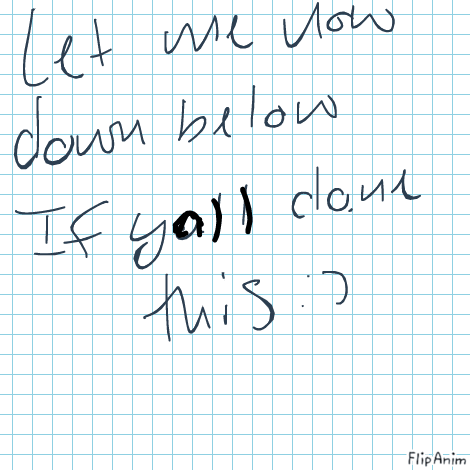 Let me now
down below
If yall done
this :)
FlipAnim